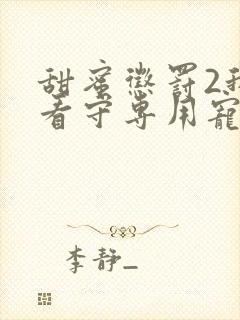 甜蜜惩罚2我
看守专用宠
李静_